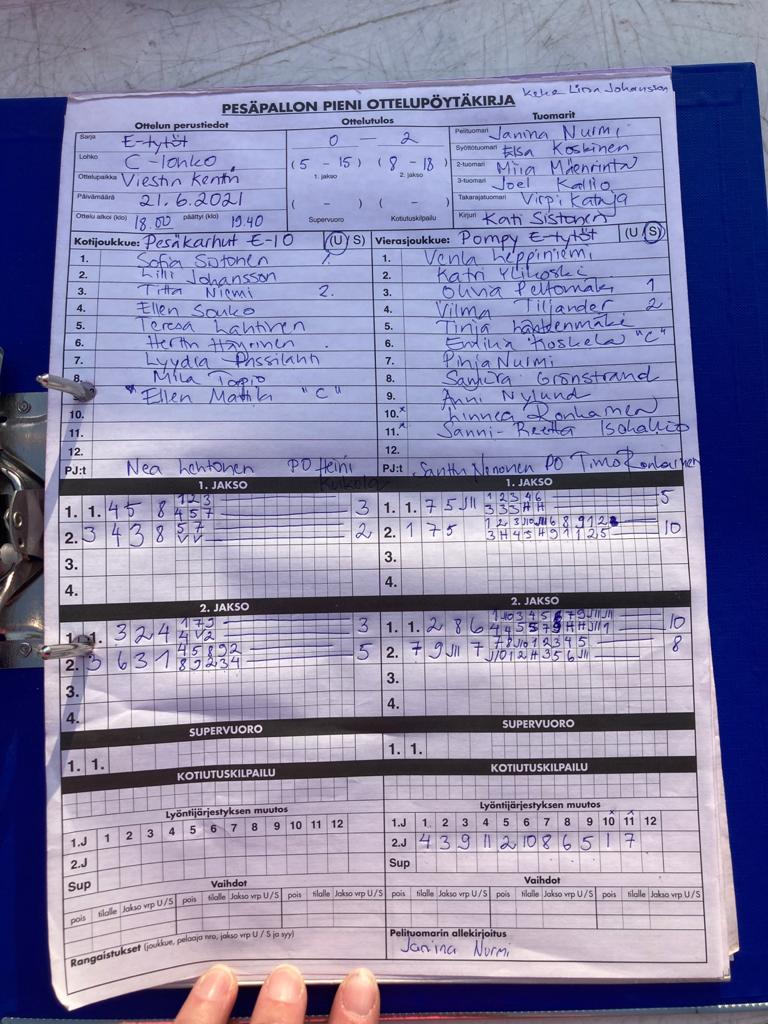 Keke Liisa Johansson
PESÄPALLON PIENI OTTELUPÖYTÄKIRJA
Ottelun perustiedot Ottelutulos Tuomarit
Sarja E-tytöt
0 – 2
Pelituomari Janina Nurmi
Lohko C-lohko
Syöttötuomari Elsa Koskinen
Ottelupaikka Viestin kenttä
(5 – 15) (8 – 18)
2-tuomari Miia Mäenrinta
1. jakso 2. jakso
3-tuomari Joel Kallio
Päivämäärä 21.6.2021
( – ) ( – )
Takarajatuomari Virpi Kataja
Ottelu alkoi (klo) 18.00 päättyi (klo) 19.40
Supervuoro Kotiutuskilpailu
Kirjuri Kati Sistonen
Kotijoukkue: Pesäkarhut E-10 (U/S) Vierasjoukkue: Pompy E-tytöt (U/S)
1. Sofia Sistonen 1. 1. Venla Leppiniemi
2. Lilli Johansson 2. Katri Ylikoski
3. Titta Niemi 2. 3. Olivia Peltomäki 1
4. Ellen Souko 4. Vilma Tiljander 2
5. Teresa Lahtinen 5. Tinja Lähteenmäki
6. Hertta Hänninen 6. Emilia Koskela "C"
7. Lyydia Passilahti 7. Pinja Nurmi
8. Mila Torpio 8. Sandra Grönstrand
* Ellen Mattila "C" 9. Anni Nylund
10. 10.x Linnea Ronkainen
11. 11.x Sanni-Reetta Isokallio
12. 12.
PJ:t Nea Lehtonen PO Heini PJ:t Santtu Ninonen PO Timo Ronkainen
1. JAKSO 1. JAKSO
1. 1. 4 5 8 1 2 3 3 1. 1. 7 5 JII 1 2 3 4 6 5
4 5 7 3 3 3 H H
2. 3 4 3 8 5 7 2 2. 1 7 5 10
V V 3 H 4 5 H 9 1 1 2 5
3. 3.
4. 4.
2. JAKSO 2. JAKSO
1. 1. 3 2 4 1 7 9 3 1. 1. 2 8 6 10
4 V 2
2. 3 6 3 1 4 5 8 9 2 5 2. 7 9 JII 7 7 8 J10 1 2 3 4 5 8
8 9 2 3 4 J10 1 2 H 3 5 6 JII
3. 3.
4. 4.
SUPERVUORO SUPERVUORO
1. 1. 1. 1.
KOTIUTUSKILPAILU KOTIUTUSKILPAILU
Lyöntijärjestyksen muutos Lyöntijärjestyksen muutos
1.J 1 2 3 4 5 6 7 8 9 10 11 12 1.J 1 2 3 4 5 6 7 8 9 10 11 12
2.J 2.J 4 3 9 11 2 10 8 6 5 1 7
Sup Sup
Vaihdot Vaihdot
pois tilalle Jakso vrp U/S pois tilalle Jakso vrp U/S pois tilalle Jakso vrp U/S pois tilalle Jakso vrp U/S pois tilalle Jakso vrp U/S pois tilalle Jakso vrp U/S
Rangaistukset (joukkue, pelaaja nro, jakso vrp U / S ja syy)
Pelituomarin allekirjoitus
Janina Nurmi